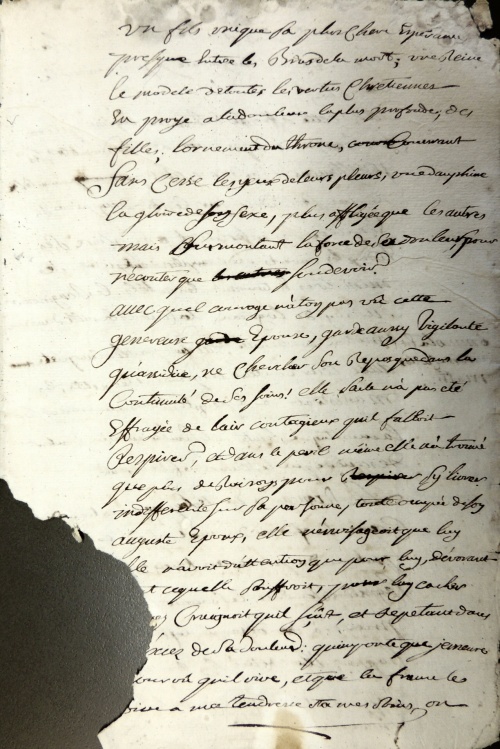 un fils unique sa plus chere Esperance
presque Entre les Bras de la mort; une Reine
le modele de toutes les vertus Chretiennes
En proye a la douleur la plus profonde, des
filles, l'ornement du throne, couvrant
Sans Cesse les yeux de leurs pleurs, une dauphine
la gloire de son sexe, plus affligée que les autres
mais Surmontant la force de sa douleur pour
n'écouter que son devoir,
avec quel courage n'a t'on pas vû cette
genereuse Epouse, garde aussy Vigilante
qu'assidue, ne Chercher Son Repos que dans la
Continuité de Ses soins! elle n'a pas été
Effrayée de l'air contagieux qu'il falloit
Respirer, et dans le peril même elle n'a trouvé
que plus de Raisons pour s'y livrer
indifferente Sur Sa personne, toute occupée de son
auguste Epoux, elle n'envisageoit que luy
elle n'avoit d'attention que pour luy, dévorant
ce qu'elle Souffroit, pour luy cacher
Craignoit qu'il sçût, et Repetant dans
de sa douleur: qu'importe que je meure
pourvû qu'il vive, et que la france le
a ma tendresse et a mes soins, on